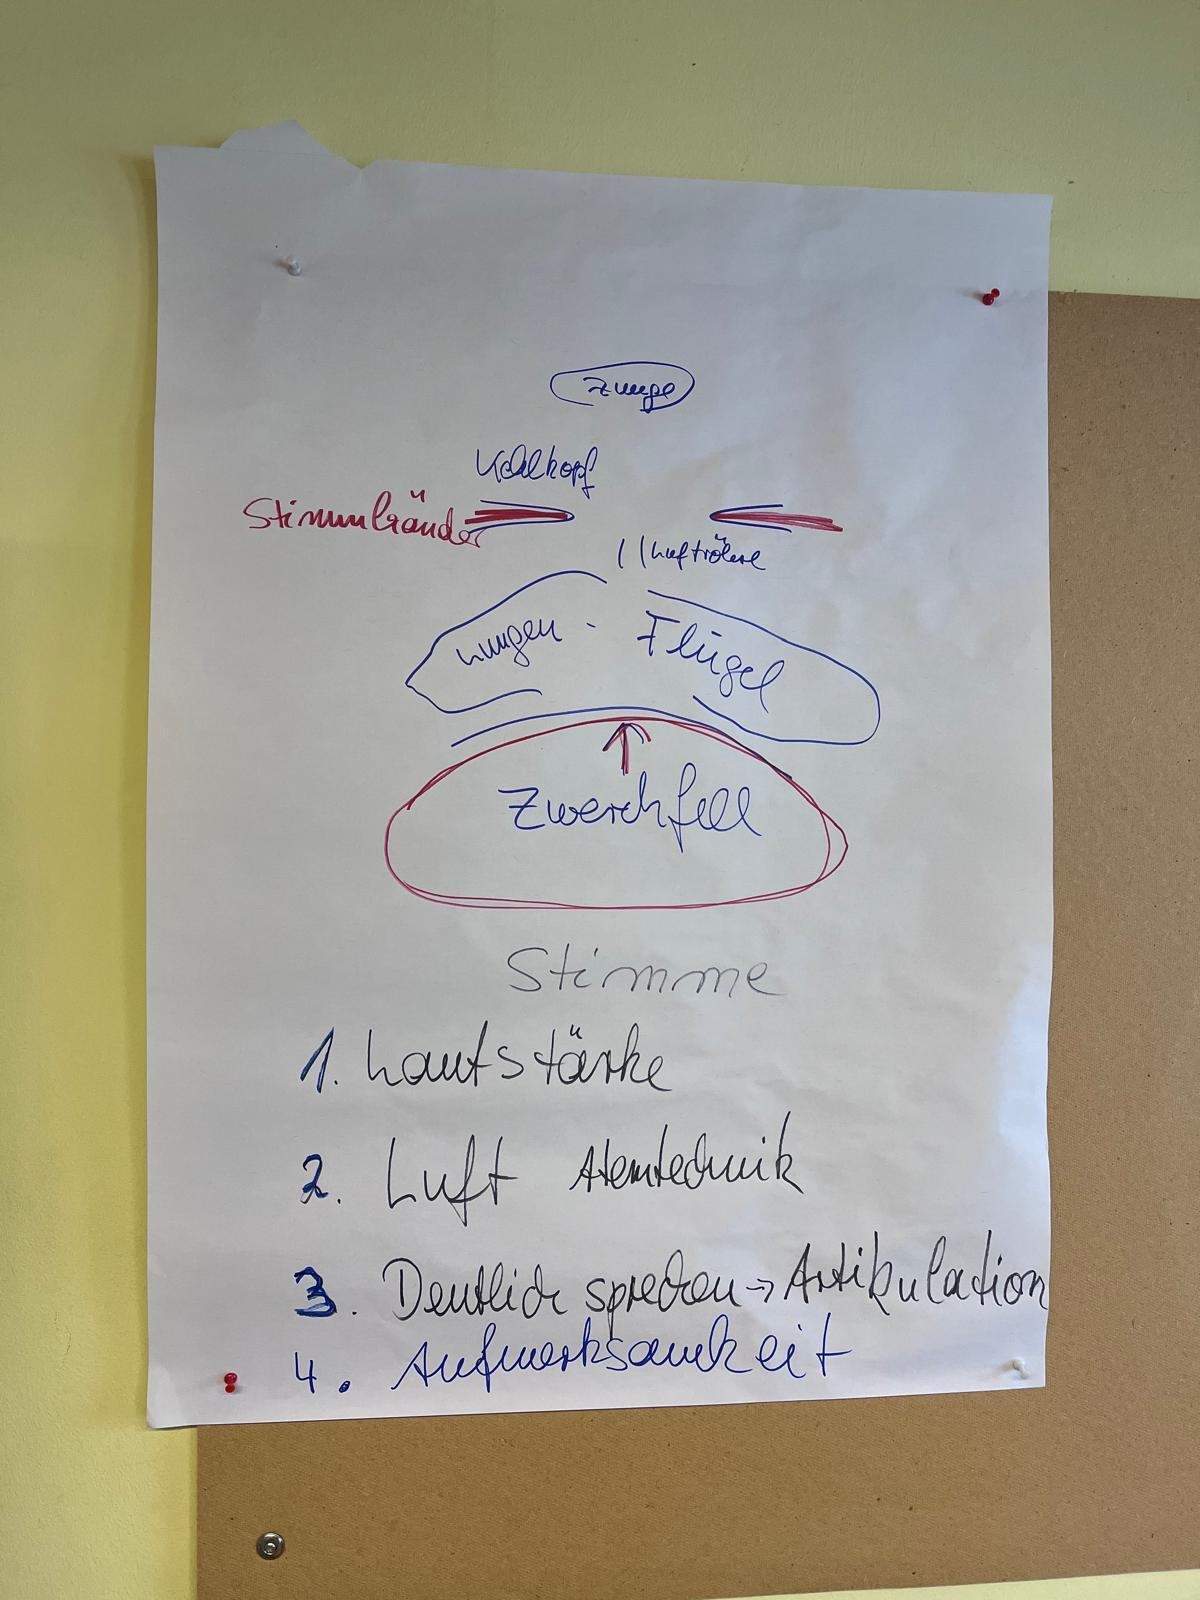 Zunge
Kehlkopf
Stimmbänder
Luftröhre
Lungen - Flügel
Zwerchfell
Stimme
1. Lautstärke
2. Luft Atemtechnik
3. Deutlich sprechen → Artikulation
4. Aufmerksamkeit